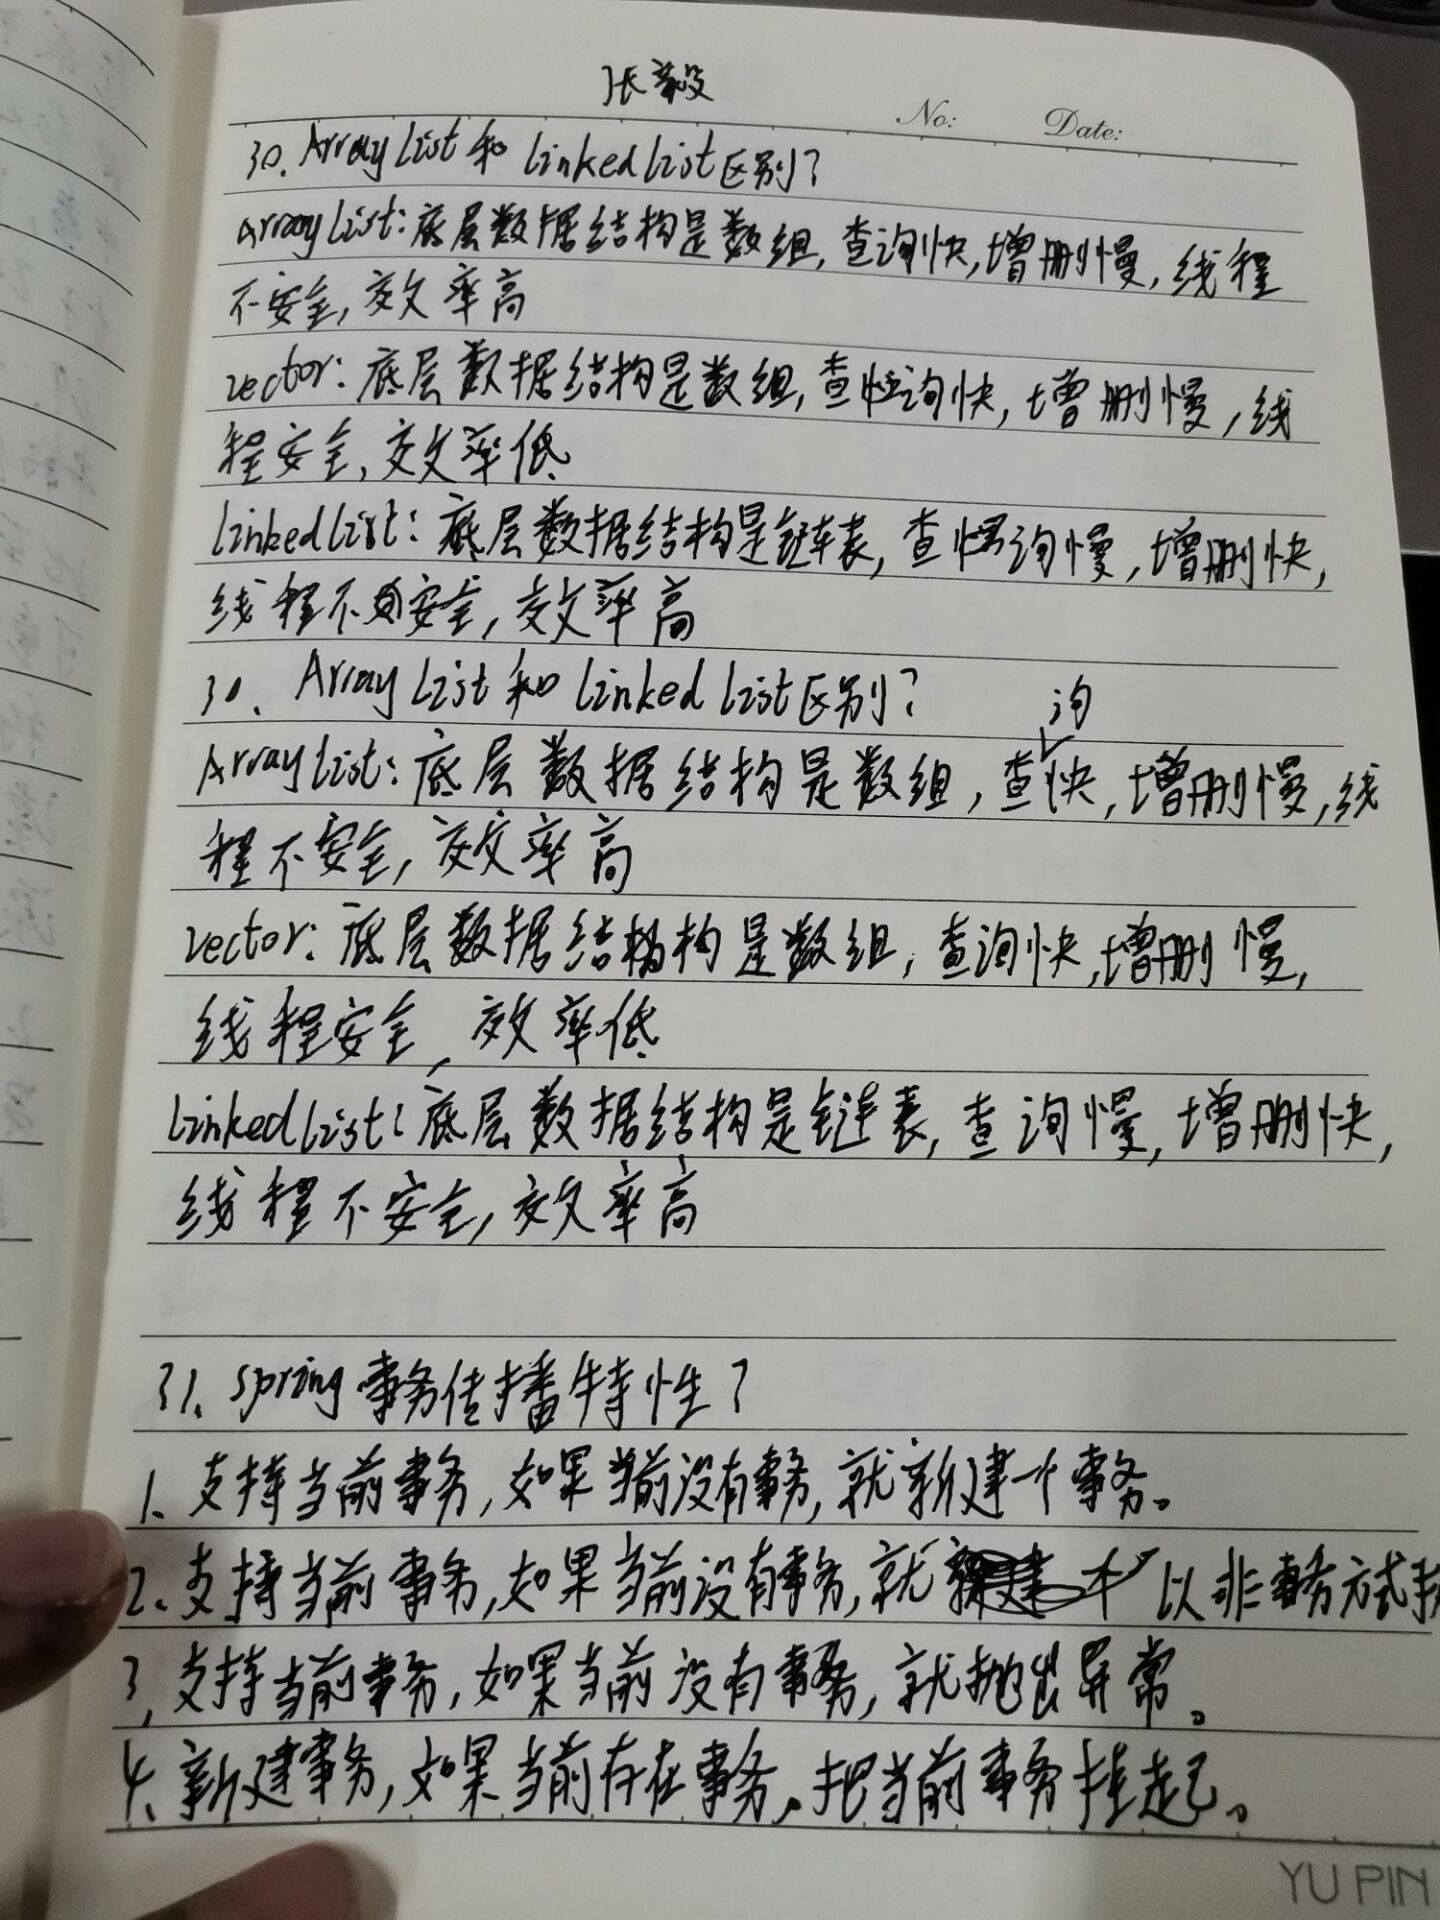 张毅
No: Date:
30. ArrayList 和 LinkedList区别?
ArrayList:底层数据结构是数组,查询快,增删慢,线程
不安全,效率高
vector:底层数据结构是数组,查询快,增删慢,线
程安全,效率低
LinkedList:底层数据结构是链表,查询慢,增删快,
线程不安全,效率高
30. ArrayList 和 Linked List区别?
ArrayList:底层数据结构是数组,查询快,增删慢,线
程不安全,效率高
vector:底层数据结构是数组,查询快,增删慢,
线程安全,效率低
LinkedList:底层数据结构是链表,查询慢,增删快,
线程不安全,效率高
31. spring 事务传播特性?
1、支持当前事务,如果当前没有事务,就新建一个事务。
2、支持当前事务,如果当前没有事务,就以非事务方式
3、支持当前事务,如果当前没有事务,就抛出异常。
4、新建事务,如果当前存在事务,把当前事务挂起。
YU PIN